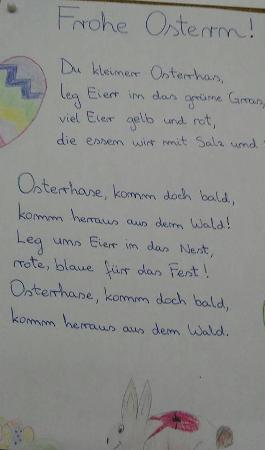 Frohe Ostern!
Du kleiner Osterhas,
leg Eier in das grüne Gras,
viel Eier gelb und rot,
die essen wir mit Salz und
Osterhase, komm doch bald,
komm heraus aus dem Wald!
Leg uns Eier in das Nest,
rote, blaue für das Fest!
Osterhase, komm doch bald,
komm heraus aus dem Wald.